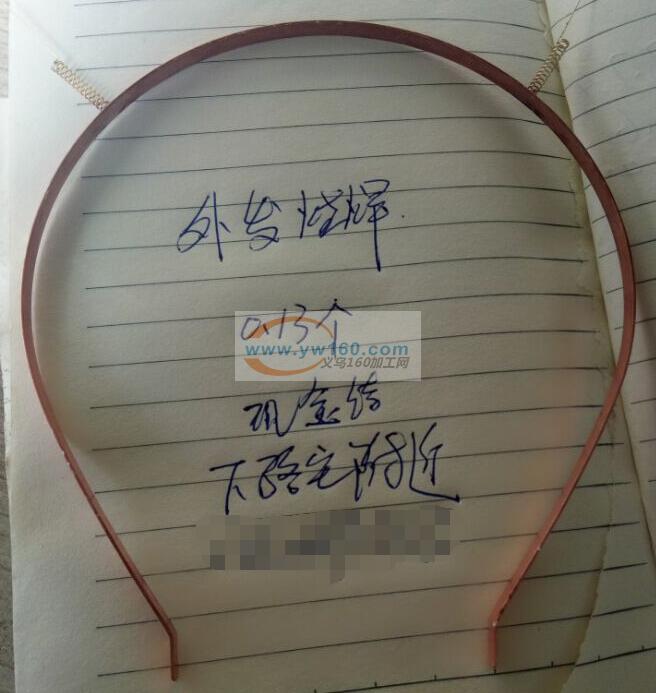 外发烧焊.
0.13个
www.yw160.com
义乌160加工网
现金结
下骆宅附近